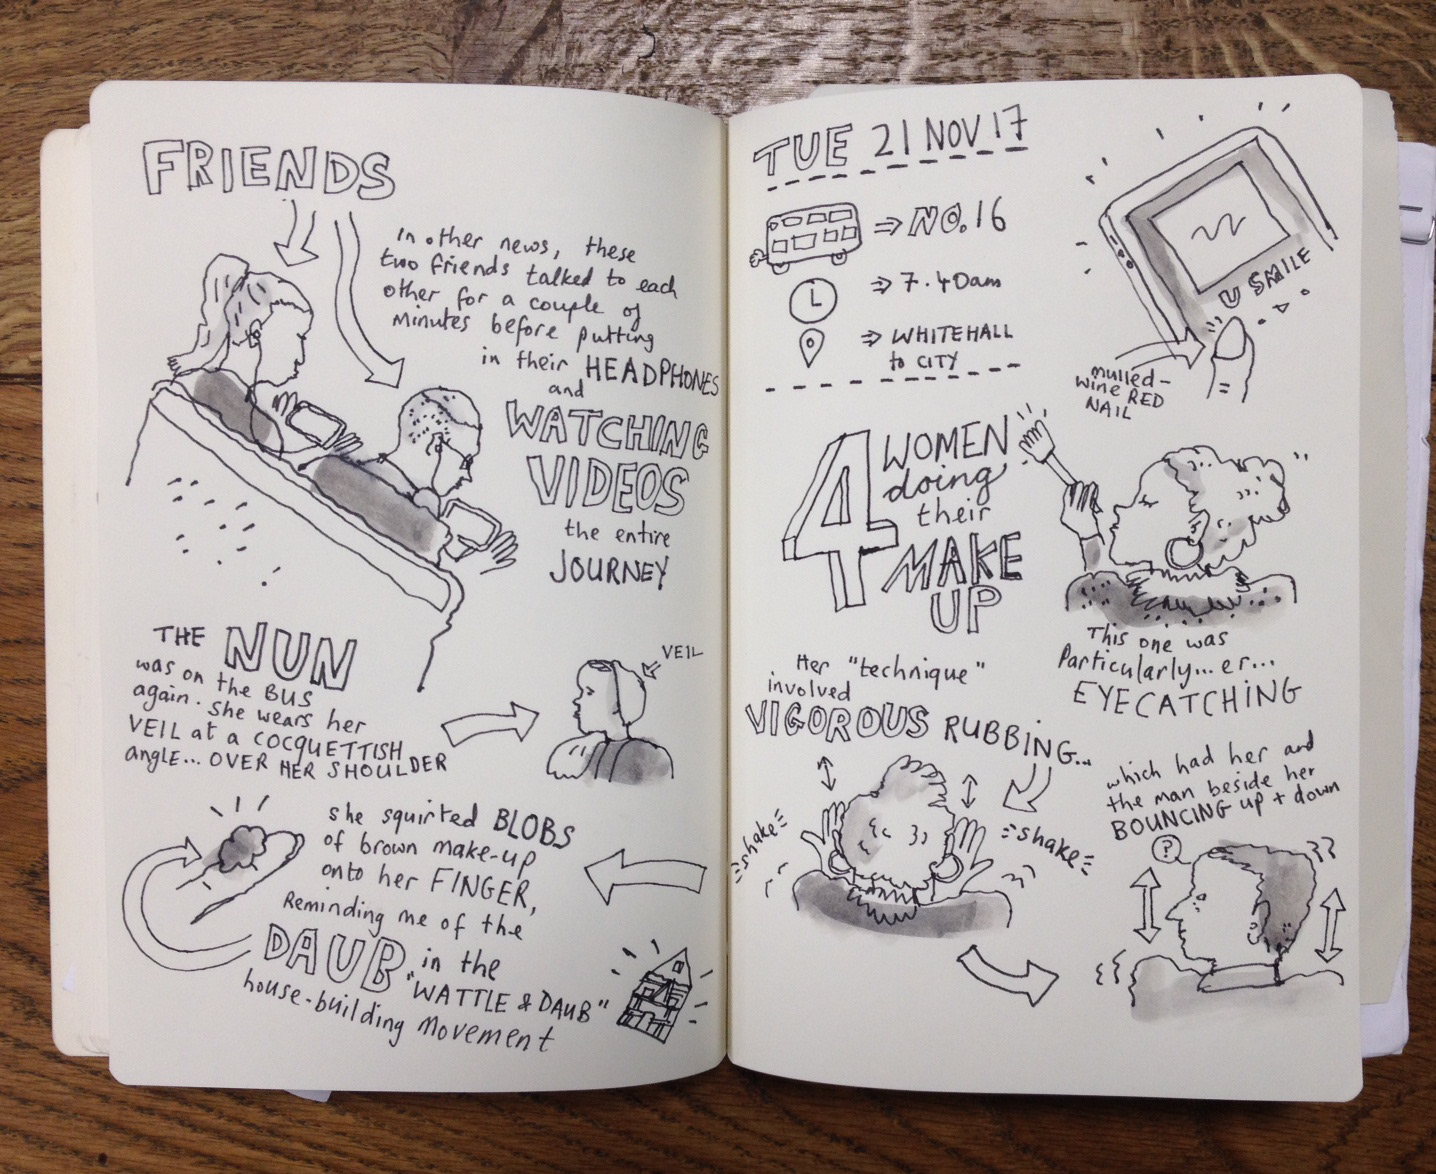 FRIENDS
In other news, these
two friends talked to each
other for a couple of
minutes before putting
in their HEADPHONES
and
WATCHING
VIDEOS
the entire
JOURNEY
THE NUN
was on the BUS
again. She wears her
VEIL at a COCQUETTISH
angle... OVER HER SHOULDER
VEIL
she squirted BLOBS
of brown make-up
onto her FINGER,
Reminding me of the
DAUB in the
"WATTLE & DAUB"
house-building movement
TUE 21 NOV 17
⇒ NO. 16
⇒ 7.40am
⇒ WHITEHALL
to CITY
U SMILE
mulled-
wine RED
NAIL
4 WOMEN
doing
their
MAKE
UP
This one was
Particularly... er...
EYECATCHING
Her "technique"
involved
VIGOROUS RUBBING...
shake
shake
which had her and
the man beside her
BOUNCING up + down
?